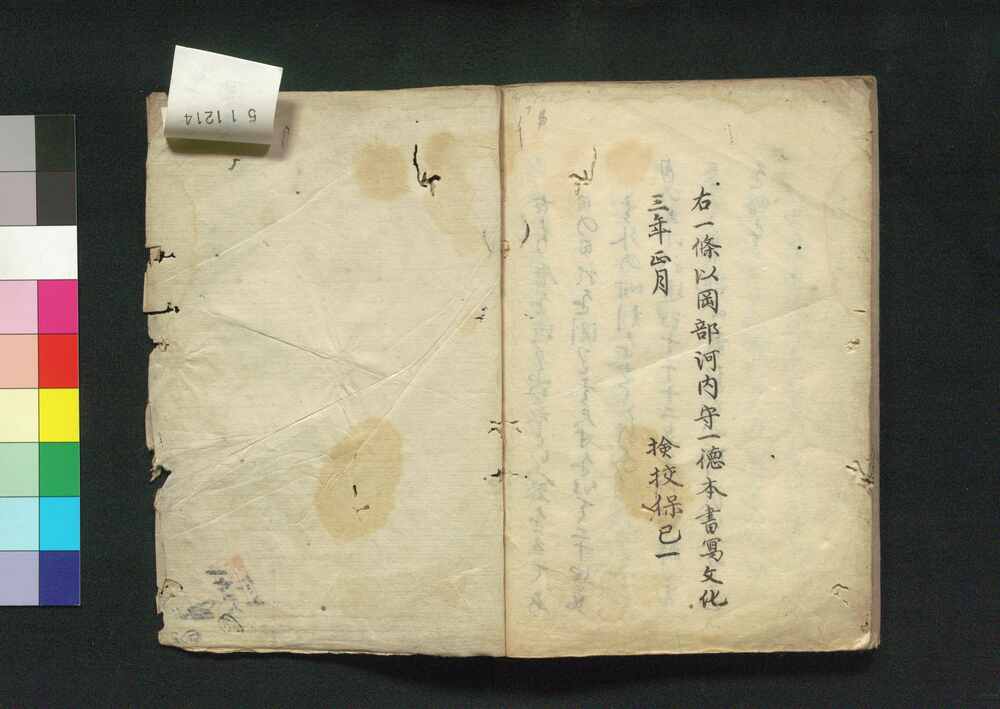 右一條以岡部河内守一徳本書寫文化
三年正月
検挍保已一
511214